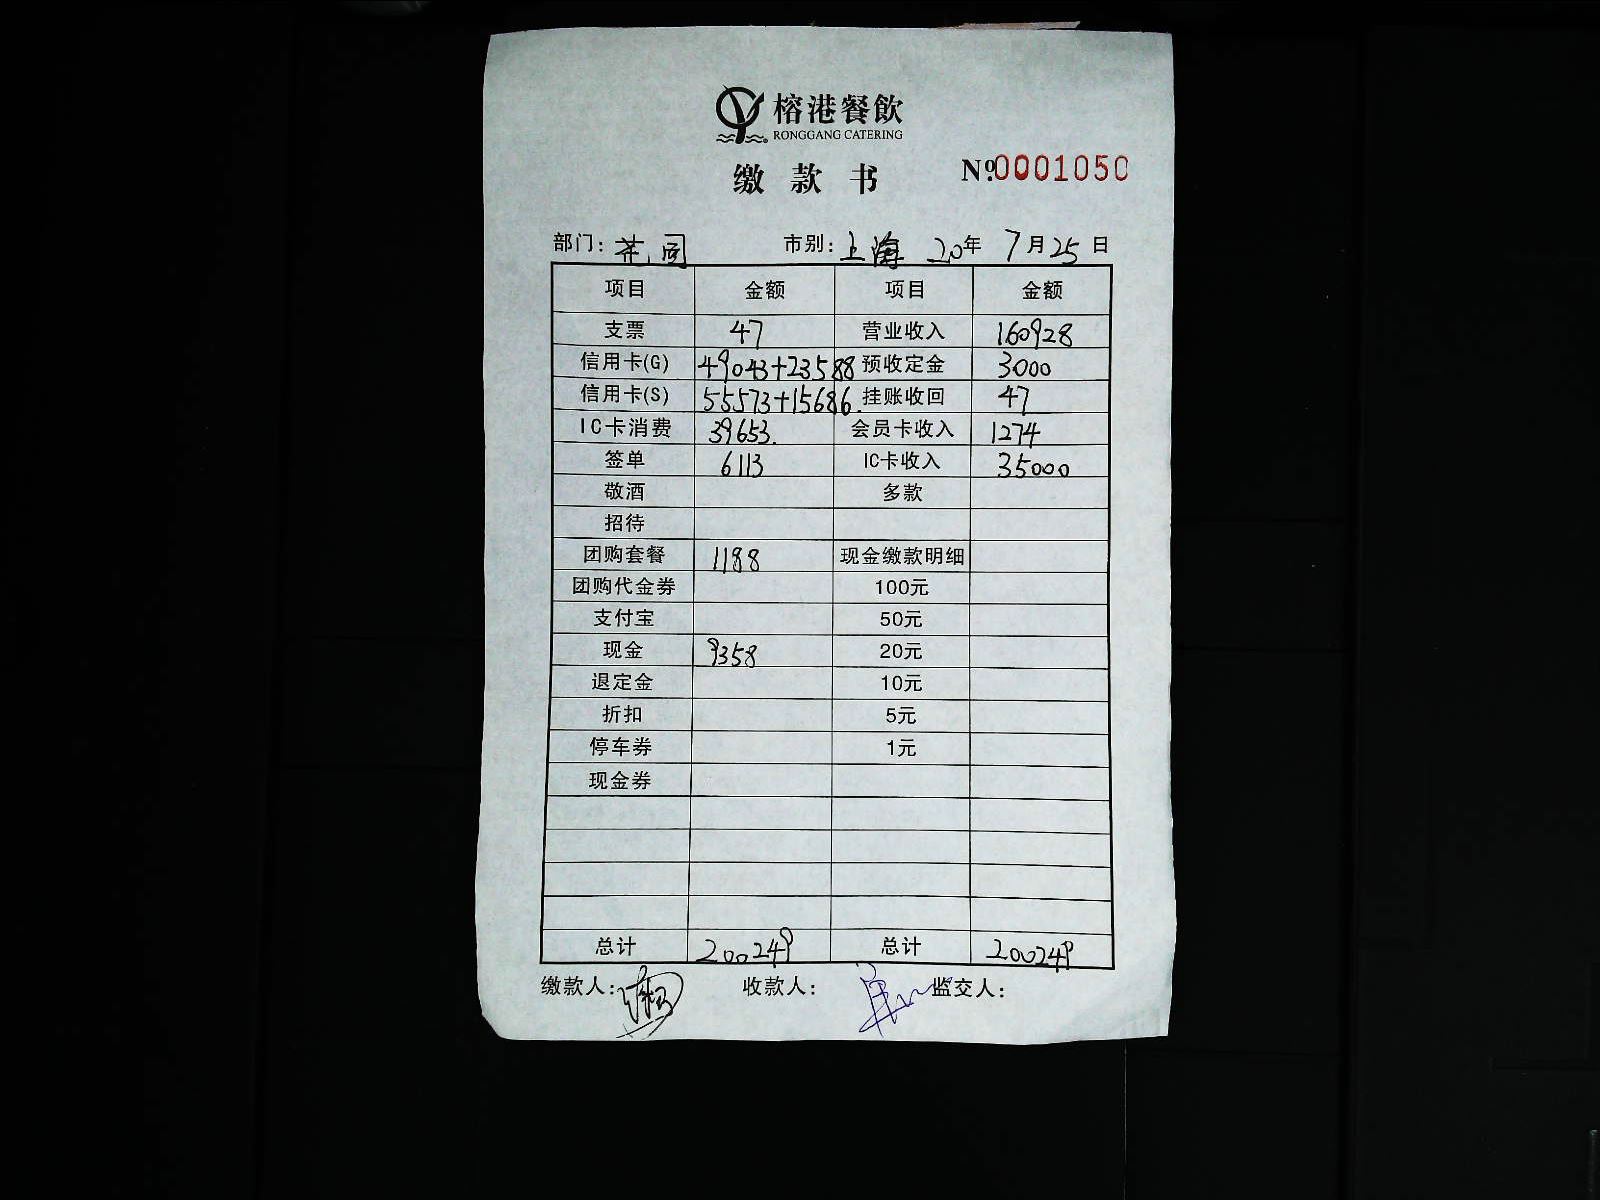 榕港餐飲
RONGGANG CATERING
缴款书 №0001050
部门: 市别: 上海 20年 7月25日
项目 金额 项目 金额
支票 47 营业收入 160928
信用卡(G) 49043+23588 预收定金 3000
信用卡(S) 55573+15686. 挂账收回 47
IC卡消费 39653. 会员卡收入 1274
签单 6113 IC卡收入 35000
敬酒 多款
招待
团购套餐 1188 现金缴款明细
团购代金券 100元
支付宝 50元
现金 9358 20元
退定金 10元
折扣 5元
停车券 1元
现金券
总计 200249 总计 200249
缴款人: 收款人: 监交人: